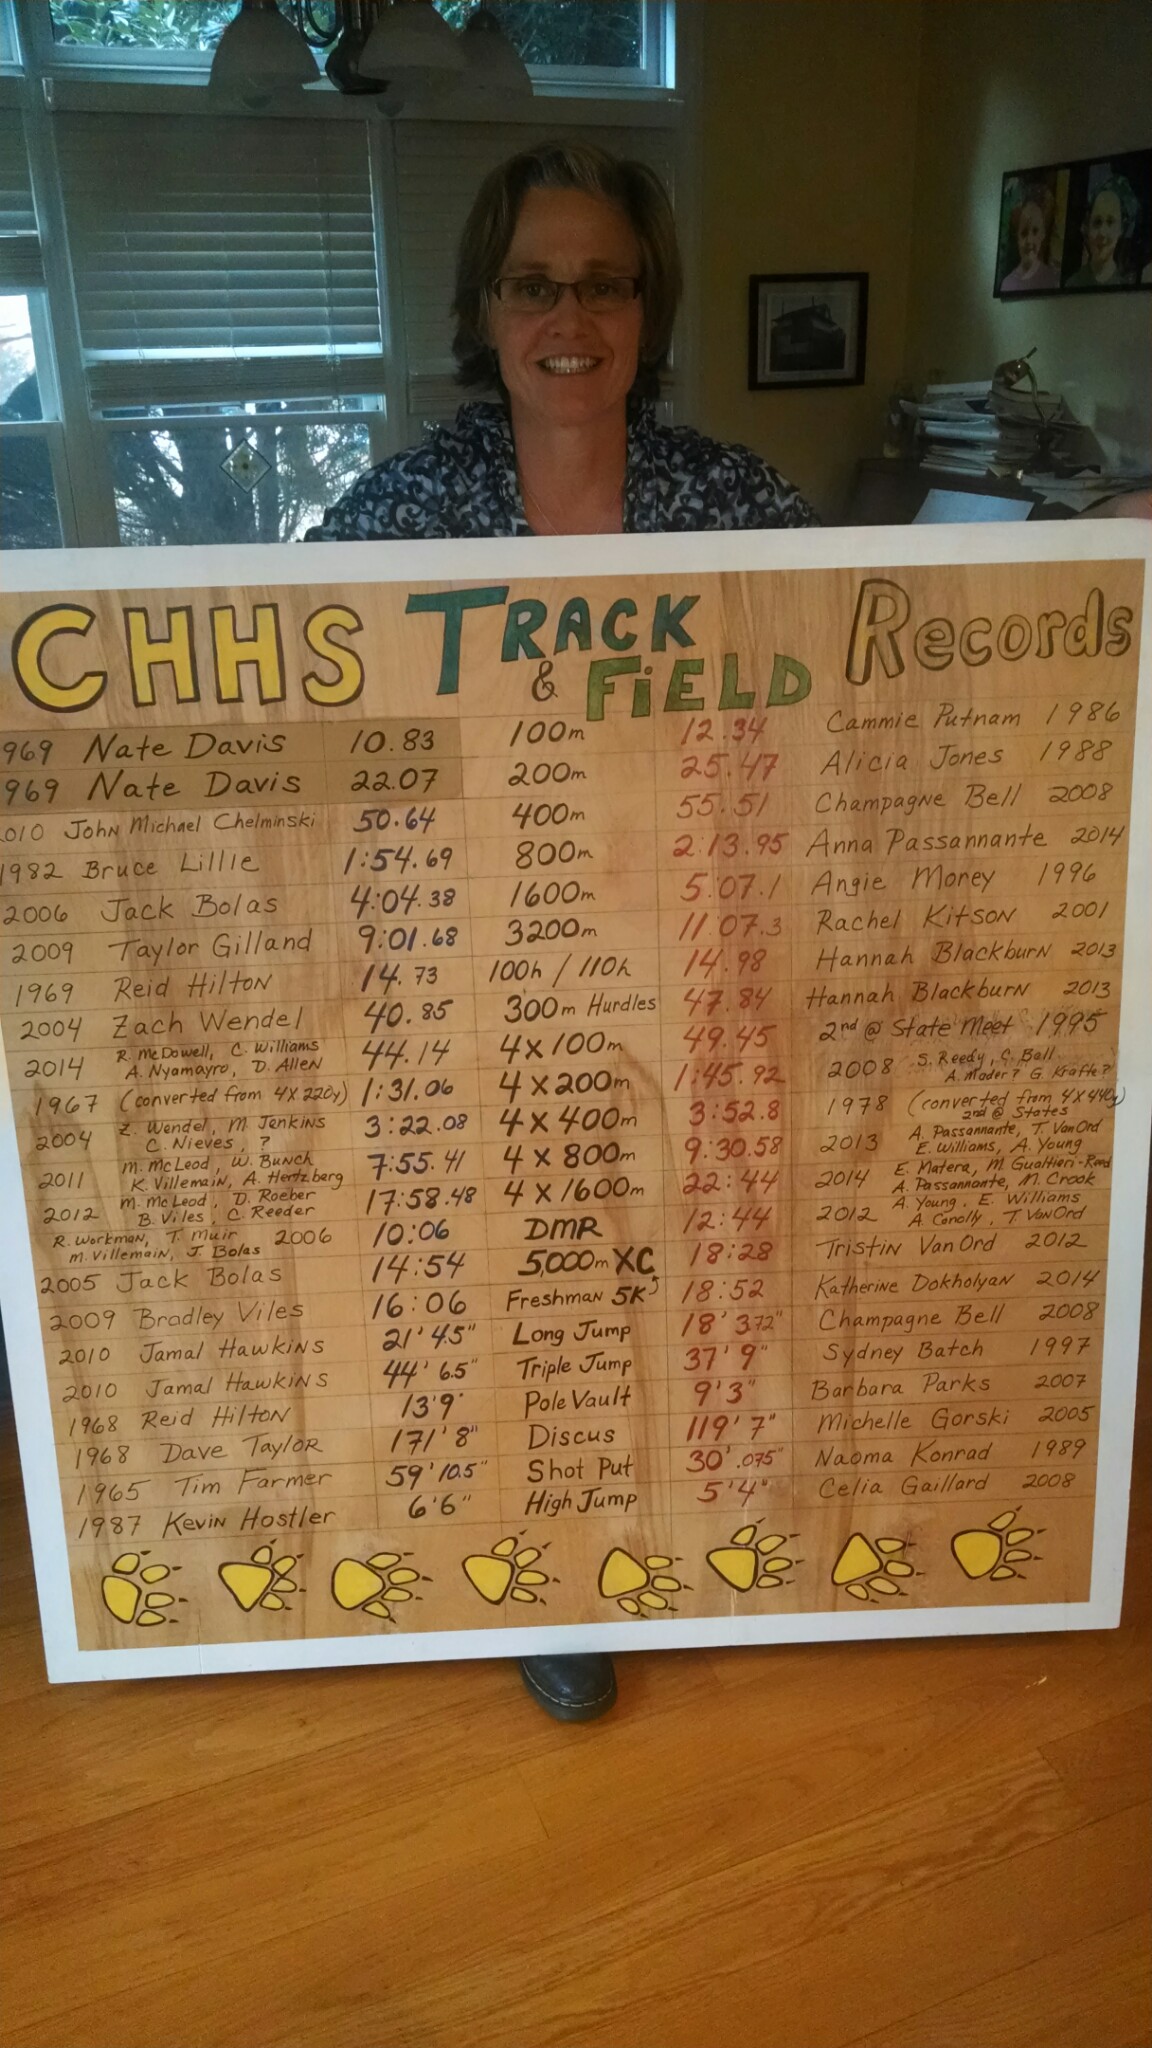 CHHS TRACK & FiELD Records
969 Nate Davis 10.83 100m 12.34 Cammie Putnam 1986
969 Nate Davis 22.07 200m 25.47 Alicia Jones 1988
2010 John Michael Chelminski 50.64 400m 55.51 Champagne Bell 2008
1982 Bruce Lillie 1:54.69 800m 2:13.95 Anna Passannante 2014
2006 Jack Bolas 4:04.38 1600m 5:07.1 Angie Morey 1996
2009 Taylor Gilland 9:01.68 3200m 11:07.3 Rachel Kitson 2001
1969 Reid Hilton 14.73 100h / 110h 14.98 Hannah Blackburn 2013
2004 Zach Wendel 40.85 300m Hurdles 47.84 Hannah Blackburn 2013
2014 R. McDowell, C. Williams A. Nyamayro, D. Allen 44.14 4x100m 49.45 2nd @ State Meet 1995
1967 (converted from 4x220y) 1:31.06 4x200m 1:45.92 2008 S. Reedy, C. Bell A. Mader? G. Krafte?
2004 Z. Wendel, M. Jenkins C. Nieves, ? 3:22.08 4x400m 3:52.8 1978 (converted from 4x440y) 2nd @ States
2011 M. McLeod, W. Bunch K. Villemain, A. Hertzberg 7:55.41 4x800m 9:30.58 2013 A. Passannante, T. VanOrd E. Williams, A. Young
2012 M. McLeod, D. Roeber B. Viles, C. Reeder 17:58.48 4x1600m 22:44 2014 E. Matera, M. Gualtieri-Reed A. Passannante, M. Crook
R. Workman, T. Muir M. Villemain, J. Bolas 2006 10:06 DMR 12:44 2012 A. Young, E. Williams A. Conolly, T. VanOrd
2005 Jack Bolas 14:54 5,000m XC 18:28 Tristin VanOrd 2012
2009 Bradley Viles 16:06 Freshman 5K 18:52 Katherine Dokholyan 2014
2010 Jamal Hawkins 21' 4.5" Long Jump 18' 3.72" Champagne Bell 2008
2010 Jamal Hawkins 44' 6.5" Triple Jump 37' 9" Sydney Batch 1997
1968 Reid Hilton 13'9" Pole Vault 9'3" Barbara Parks 2007
1968 Dave Taylor 171' 8" Discus 119' 7" Michelle Gorski 2005
1965 Tim Farmer 59' 10.5" Shot Put 30' .075" Naoma Konrad 1989
1987 Kevin Hostler 6'6" High Jump 5'4" Celia Gaillard 2008